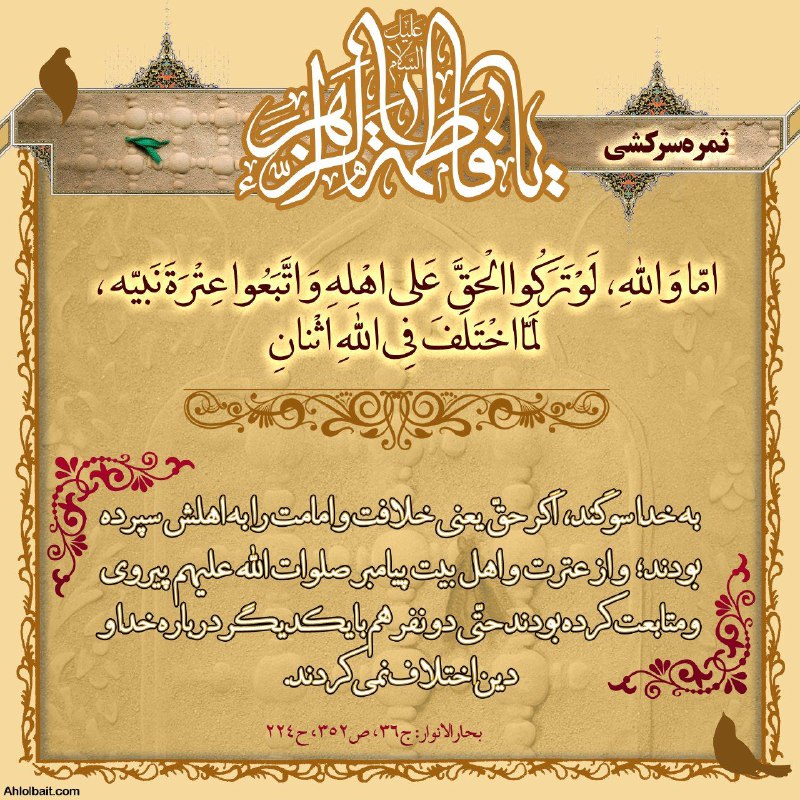 یا فاطمة الزهراء
علیک السلام
ثمره سرکشی
۶
امّا وَاللهِ، لَوْ تَرَكُوا الْحَقَّ عَلى اهْلِهِ وَاتَّبَعُوا عِتْرَةَ نَبيّه،
لَمَّا اخْتَلَفَ فِى اللهِ اثْنانِ
به خدا سوگند، اگر حقّ یعنی خلافت و امامت را به اهلش سپرده
بودند؛ و از عترت و اهل بیت پیامبر صلوات الله علیهم پیروی
و متابعت کرده بودند حتّی دو نفر هم با یکدیگر درباره خدا و
دین اختلاف نمی کردند.
بحارالانوار: ج۳۶، ص۳۵۲، ح۲۲۴
Ahlolbait.com